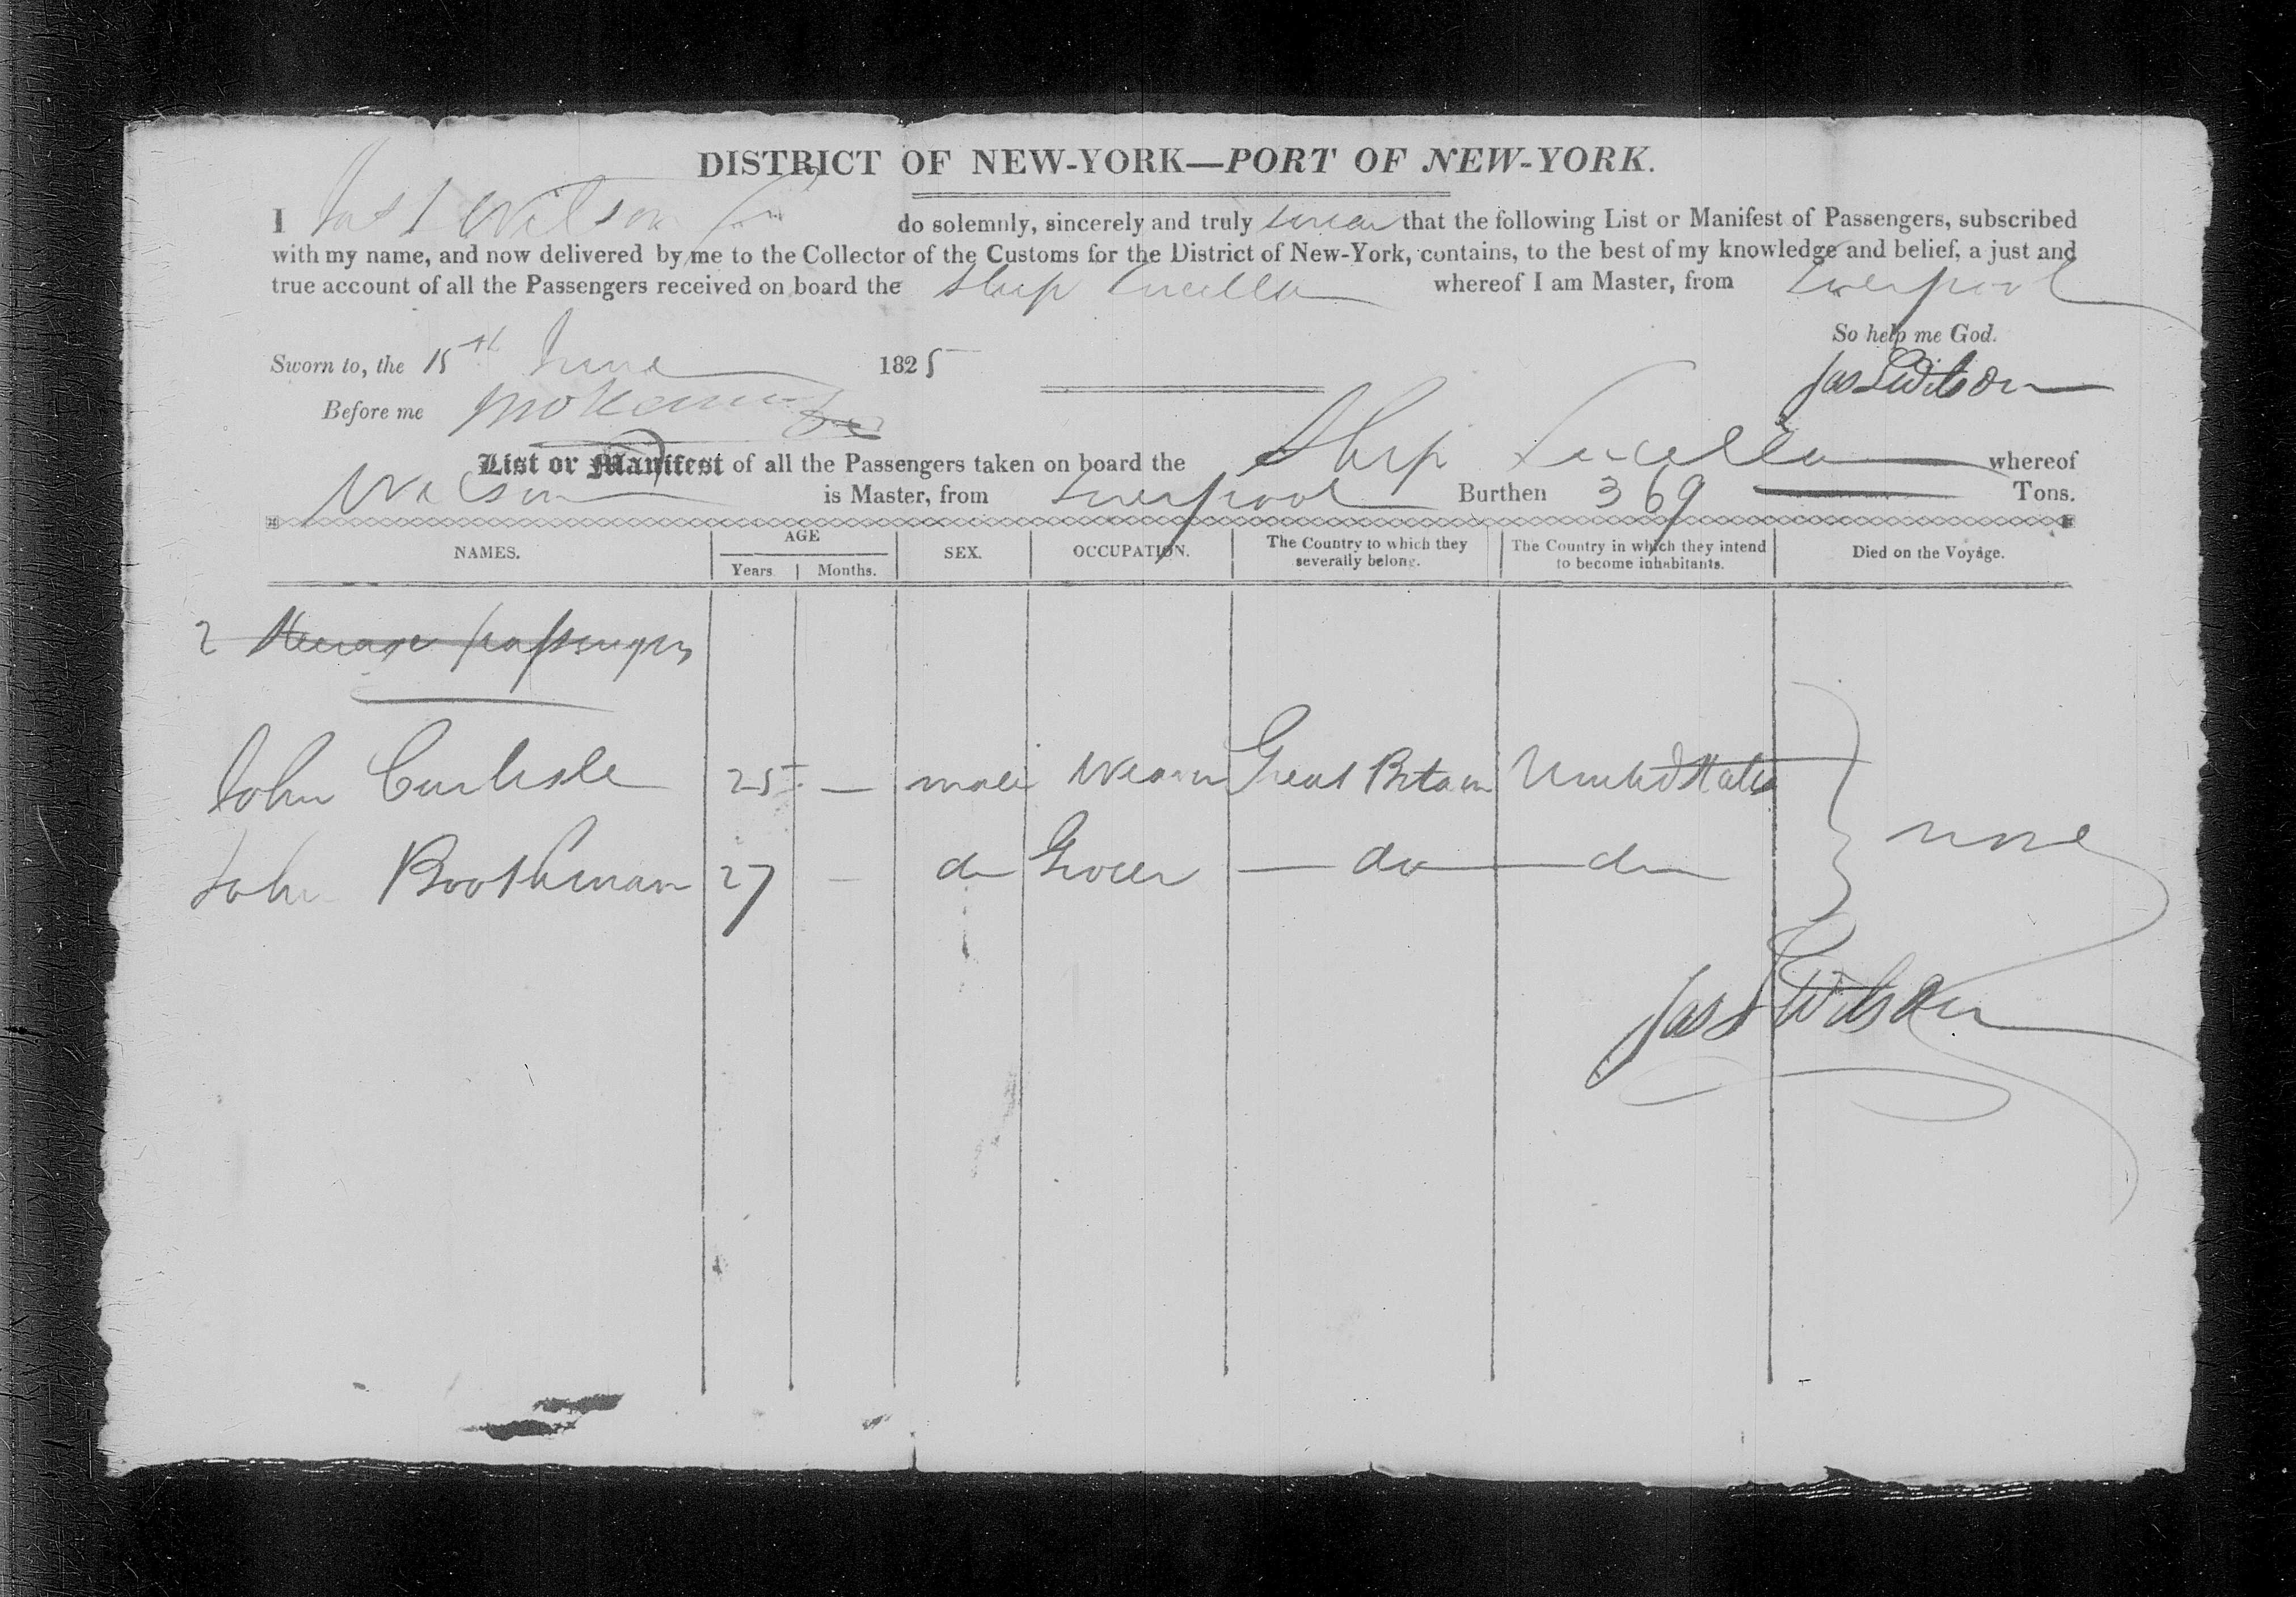 DISTRICT OF NEW-YORK—PORT OF NEW-YORK.
I Jas L Wilson do solemnly, sincerely and truly swear that the following List or Manifest of Passengers, subscribed
with my name, and now delivered by me to the Collector of the Customs for the District of New-York, contains, to the best of my knowledge and belief, a just and
true account of all the Passengers received on board the Ship Lucilla whereof I am Master, from Liverpool
So help me God.
Sworn to, the 15th June 1825
Jas L Wilson
Before me
List or Manifest of all the Passengers taken on board the Ship Lucilla whereof
Wilson is Master, from Liverpool Burthen 369 Tons.
NAMES. AGE Years Months. SEX. OCCUPATION. The Country to which they severally belong. The Country in which they intend to become inhabitants. Died on the Voyage.
2 Steerage passengers
John Carlisle 25 — male Weaver Great Britain United States
none
John Boothman 27 — do Grocer — do — do
Jas L Wilson